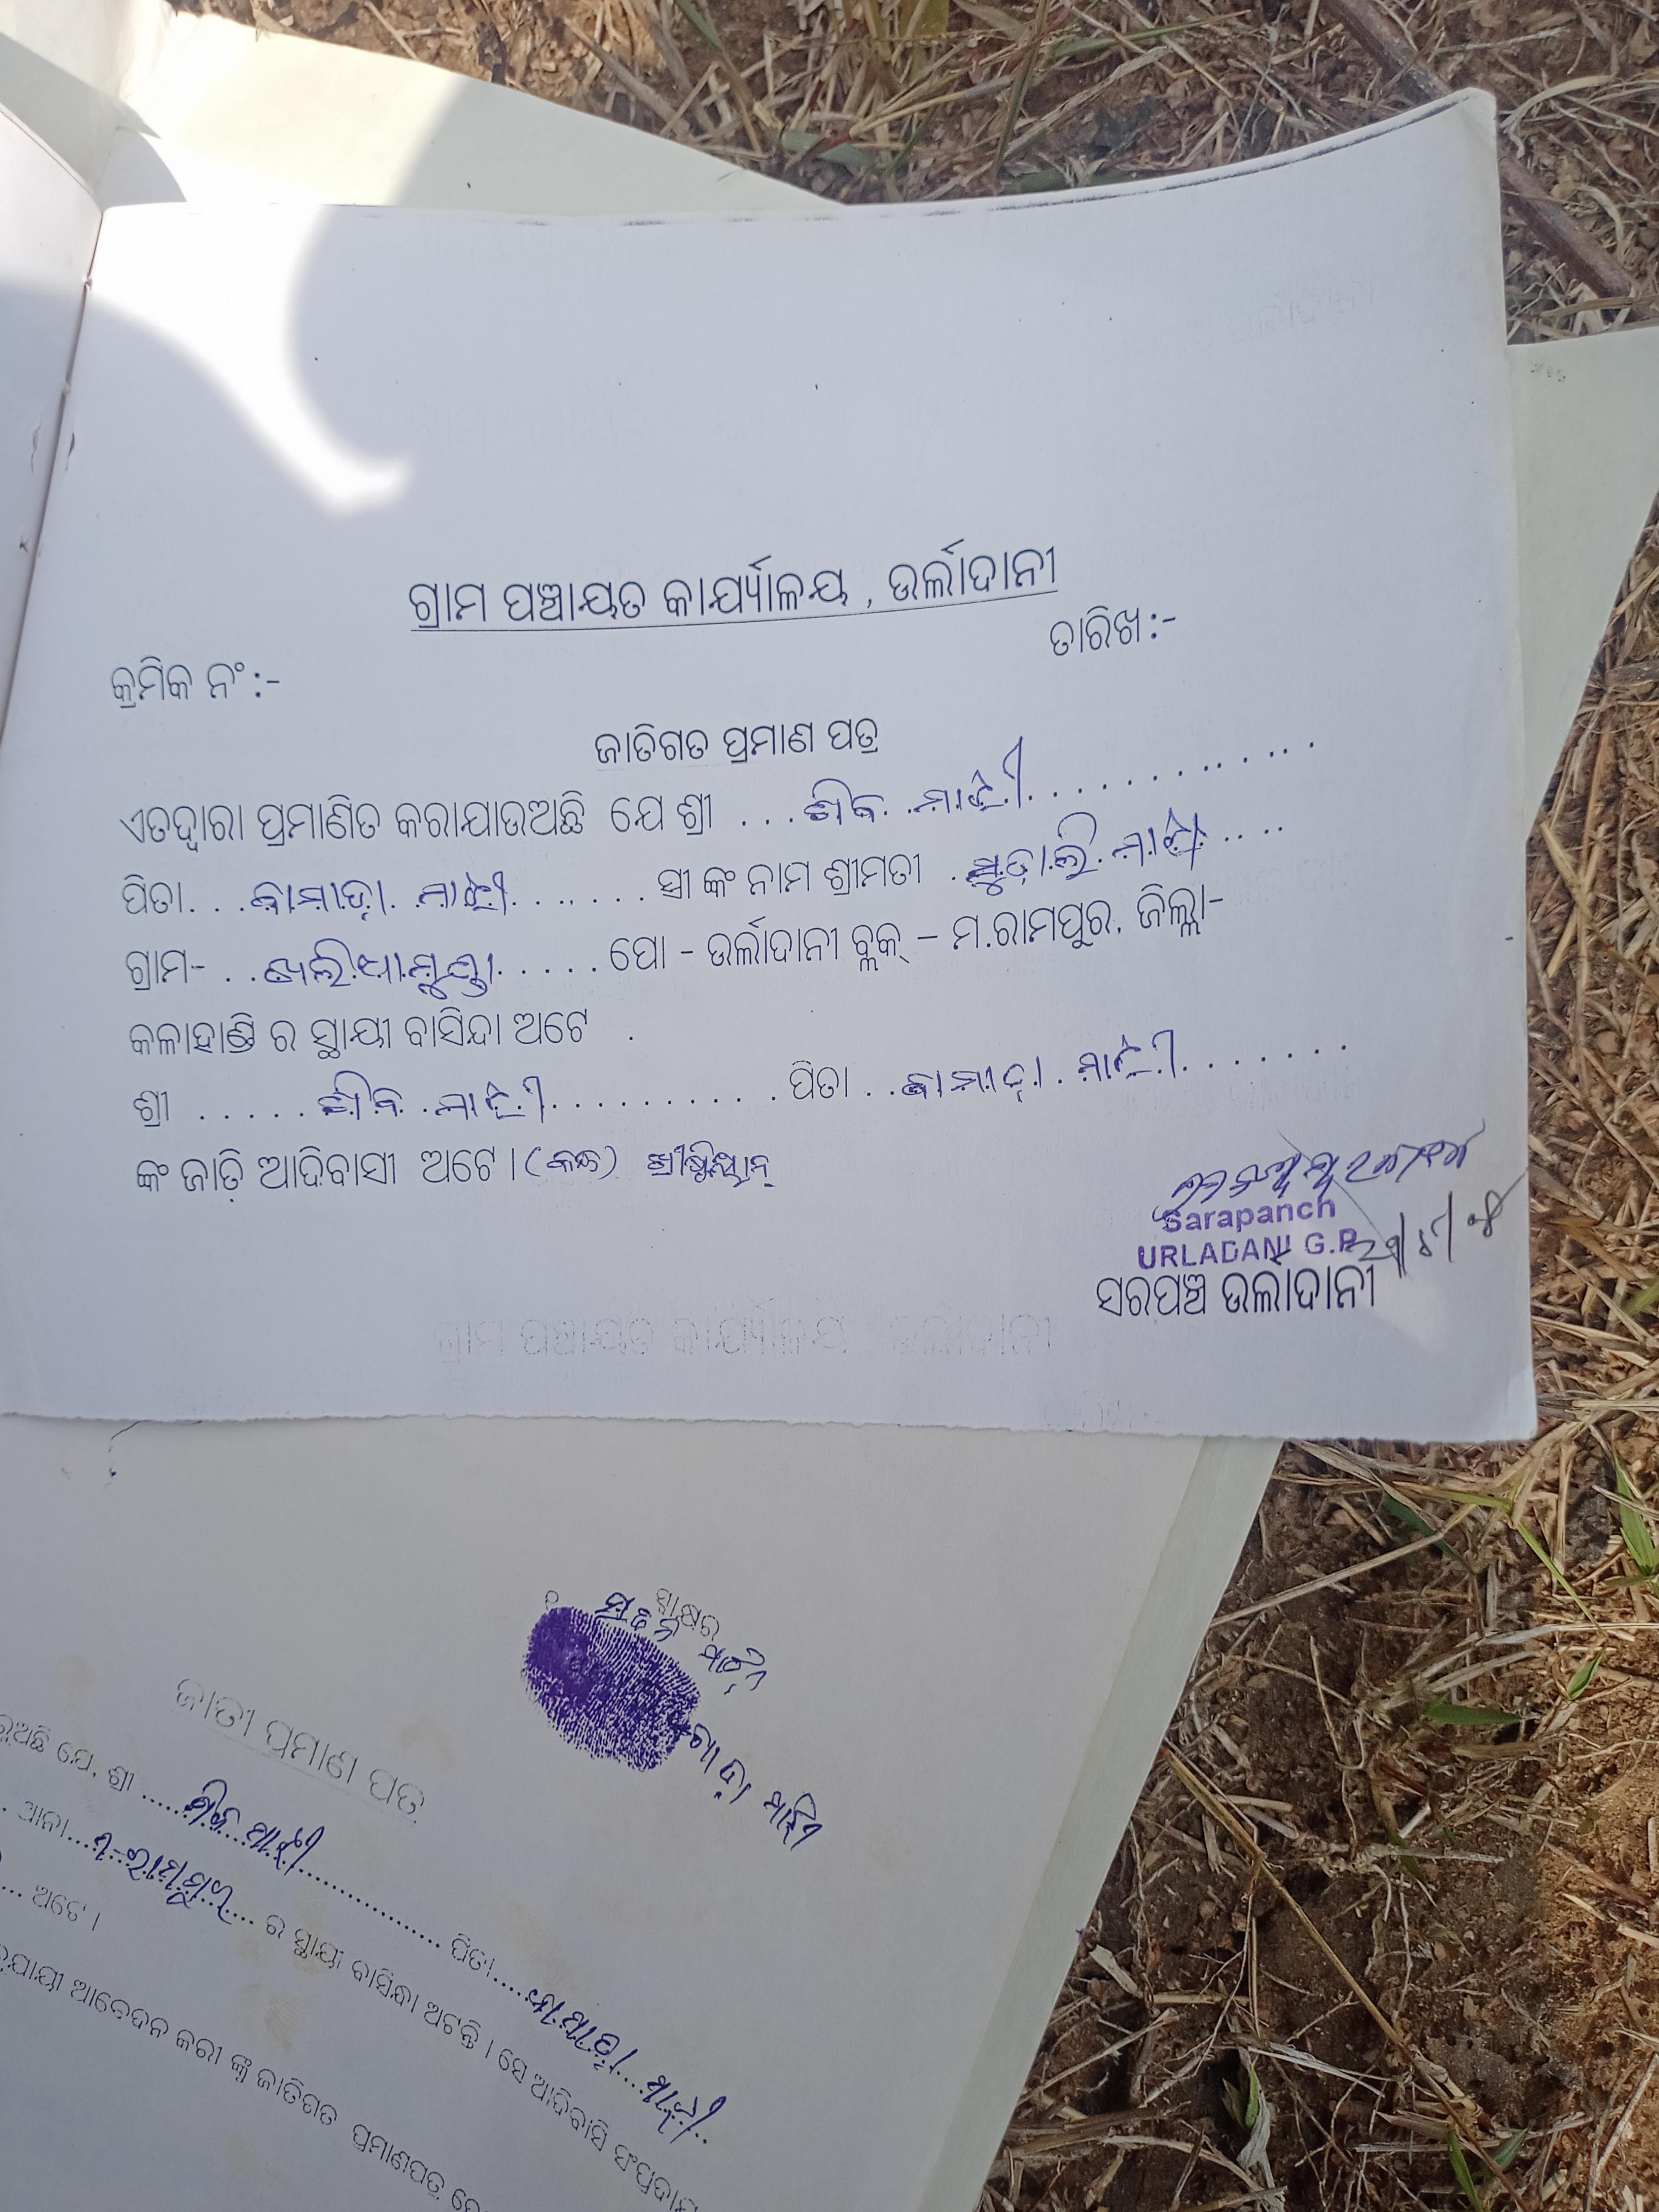 ଗ୍ରାମ ପଞ୍ଚାୟତ କାର୍ଯ୍ୟାଳୟ , ଉର୍ଲାଦାନୀ
କ୍ରମିକ ନଂ :-
ତାରିଖ :-
ଜାତିଗତ ପ୍ରମାଣ ପତ୍ର
ଏତଦ୍ୱାରା ପ୍ରମାଣିତ କରାଯାଉଅଛି ଯେ ଶ୍ରୀ ... ଶିବ ମାଝୀ ............
ପିତା... ବାମାଦ୍ରା ମାଝୀ ....... ସ୍ତ୍ରୀ ଙ୍କ ନାମ ଶ୍ରୀମତୀ . ମାଝୀ ....
ଗ୍ରାମ- .. ଖଲିଆମୁଣ୍ଡା ..... ପୋ - ଉର୍ଲାଦାନୀ ବ୍ଲକ୍ – ମ.ରାମପୁର, ଜିଲ୍ଲା-
କଳାହାଣ୍ଡି ର ସ୍ଥାୟୀ ବାସିନ୍ଦା ଅଟେ .
ଶ୍ରୀ ..... ଶିବ ମାଝୀ .......... ପିତା .. ବାମାଦ୍ରା ମାଝୀ .......
ଙ୍କ ଜାତି ଆଦିବାସୀ ଅଟେ । (କନ୍ଧ) ଖ୍ରୀଷ୍ଟିୟାନ୍
Sarapanch
URLADANI G.P
ସରପଞ୍ଚ ଉର୍ଲାଦାନୀ
ସ୍ୱାକ୍ଷର
ମାଝୀ
ଜାତୀ ପ୍ରମାଣ ପତ୍ର
ଯେ, ଶ୍ରୀ ...... ଶିବ ମାଝୀ ............ ପିତା.... ବାମାଦ୍ରା ... ମାଝୀ ..
. ଥାନା... ମ-ରାମପୁର .... ର ସ୍ଥାୟୀ ବାସିନ୍ଧା ଅଟନ୍ତି । ସେ ଆଦିବାସି
... ଅଟେ ।
ଆବେଦନ କରୀ ଙ୍କୁ ଜାତିଗତ ପ୍ରମାଣପତ୍ର